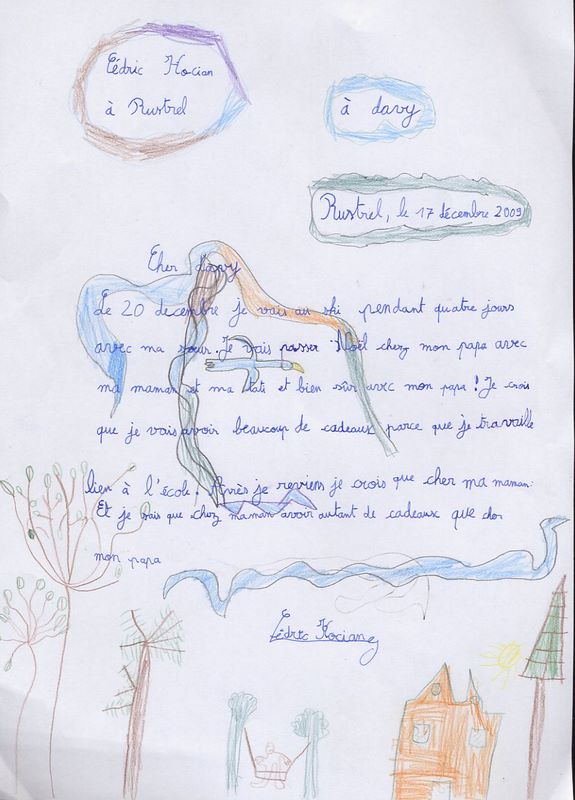 Cédric Hocian
à Rustrel
à davy
Rustrel, le 17 décembre 2009
Cher davy
Le 20 decembre je vais au ski pendant quatre jours
avec ma sœur. Je vais passer Noël chez mon papa avec
ma maman et ma tati et bien sûr avec mon papa ! Je crois
que je vais avoir beaucoup de cadeaux parce que je travaille
bien à l'école ! Après je reviens je crois que cher ma maman.
Et je vais que chez maman avoir autant de cadeaux que cher
mon papa
Cédric Hocian